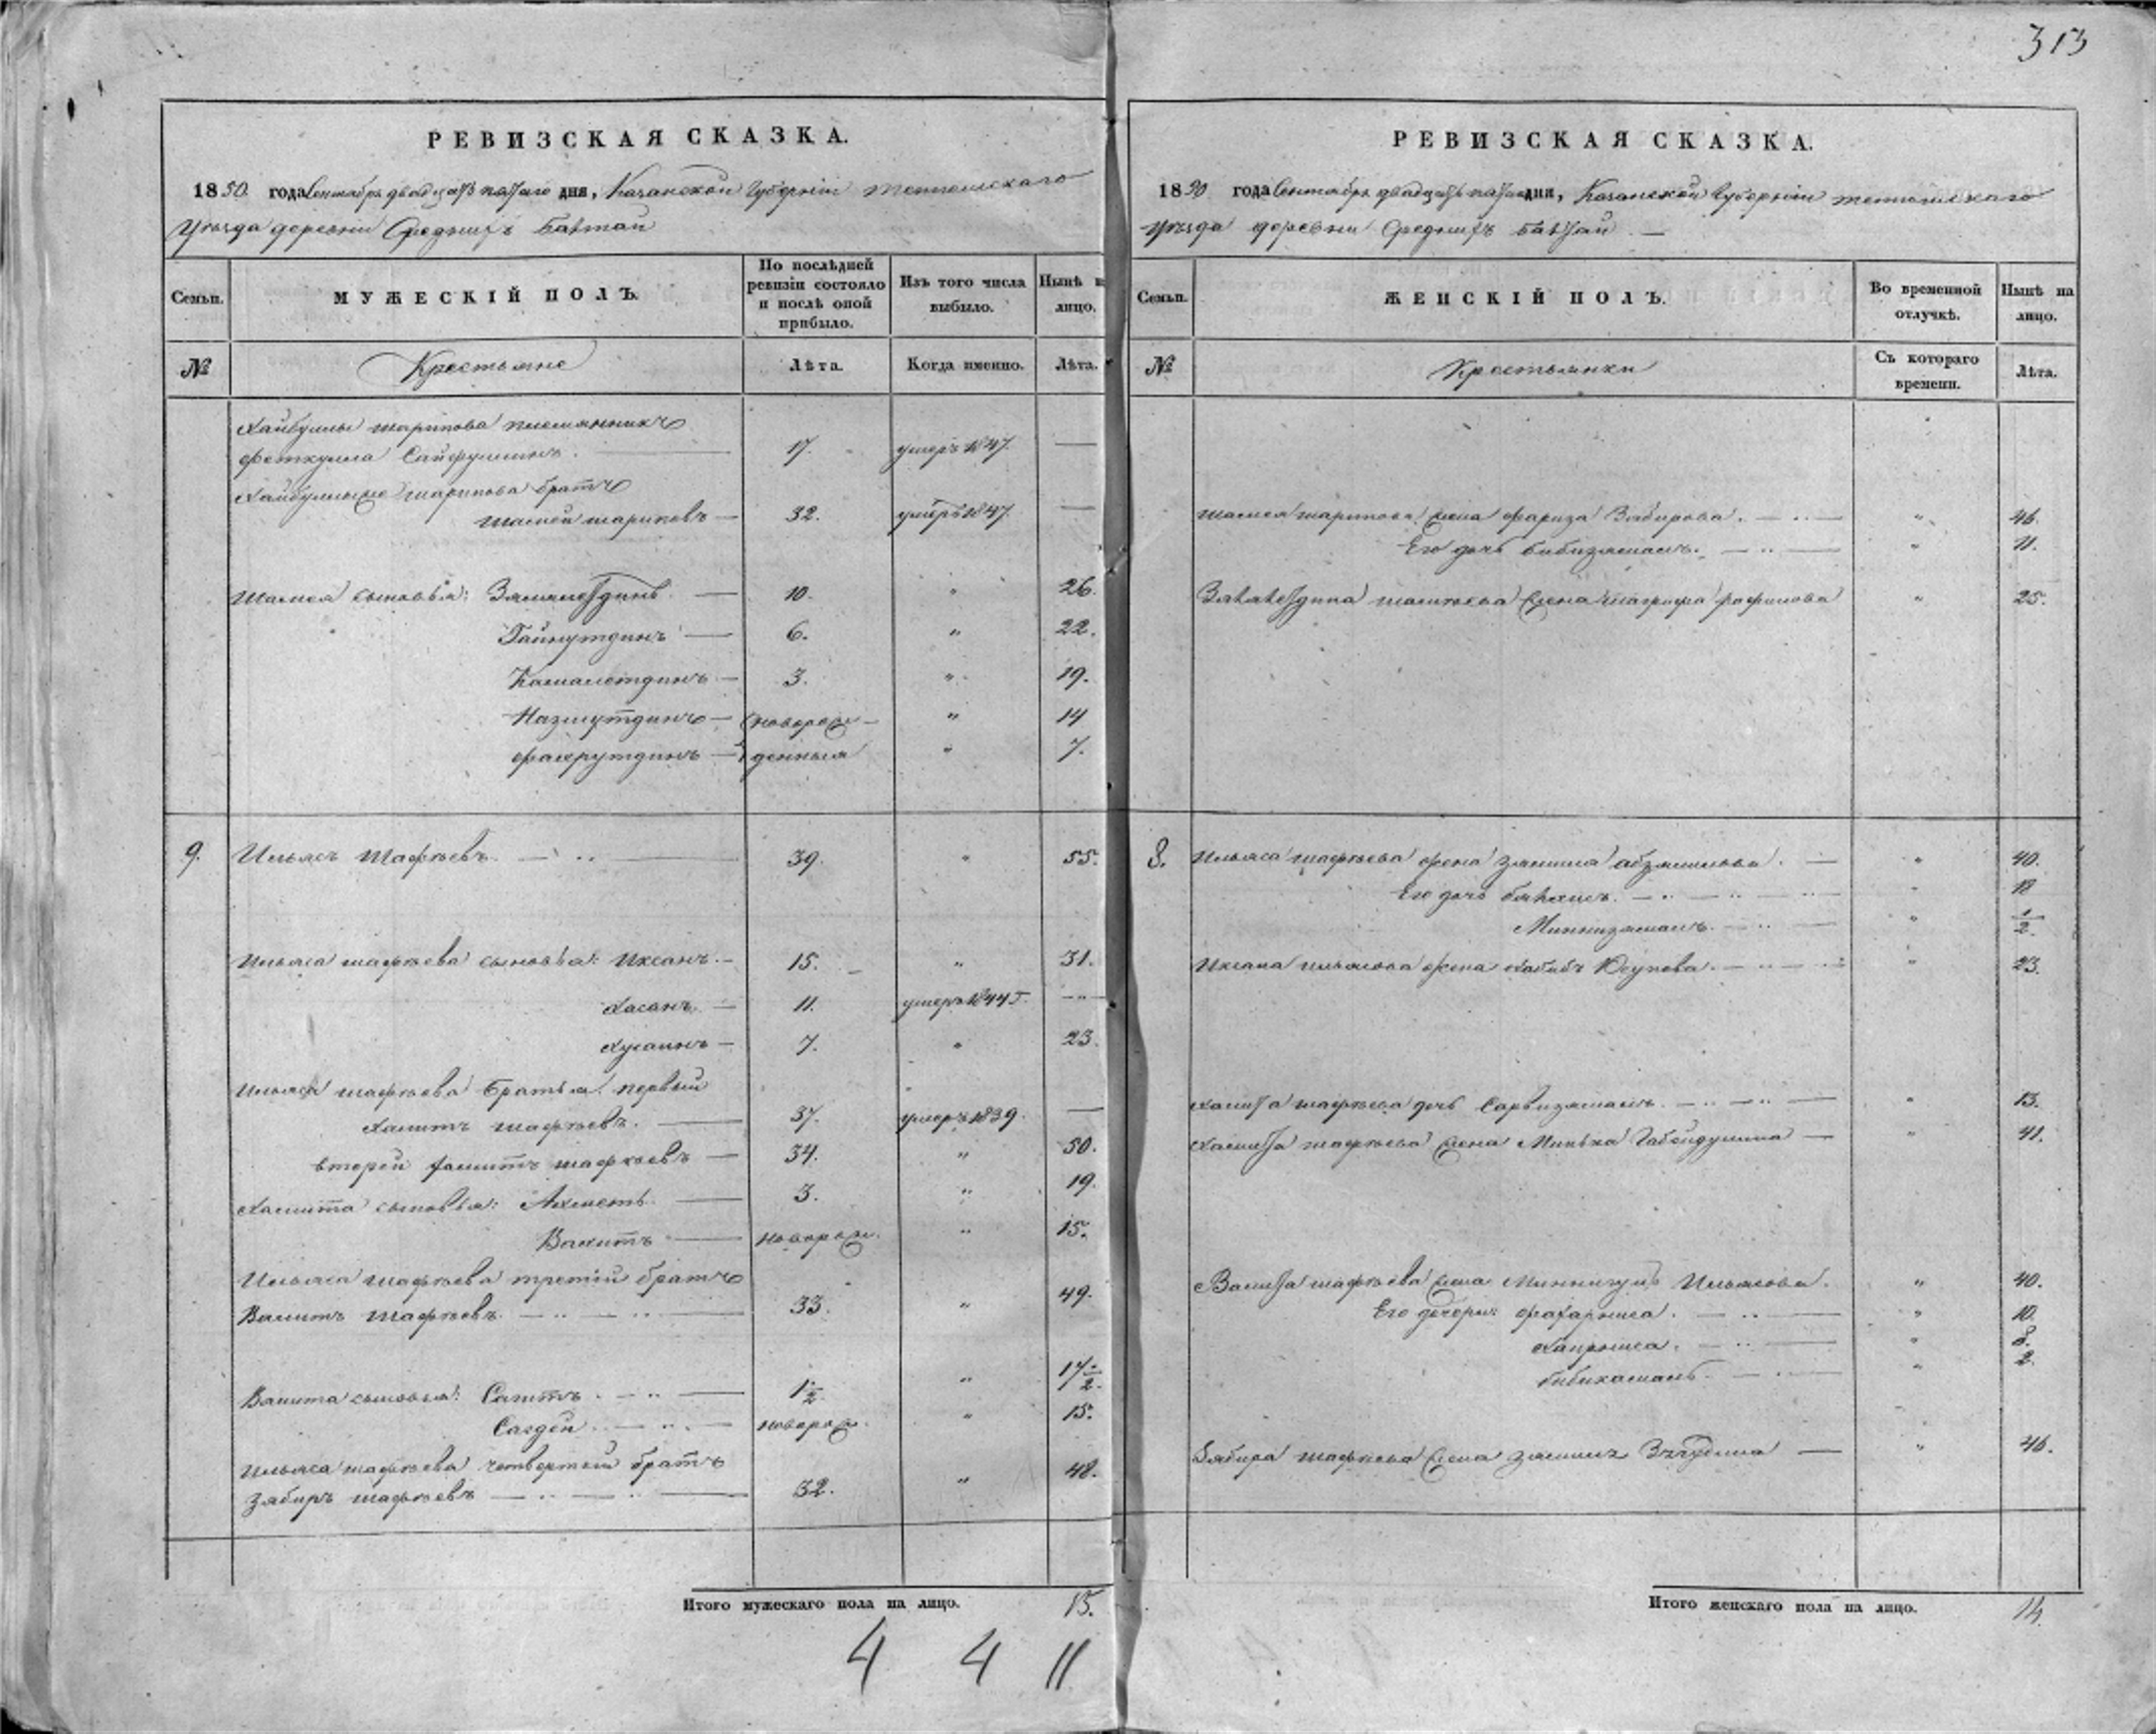 313
РЕВИЗСКАЯ СКАЗКА.
1850 года Сентября двадцать пятаго дня, Казанской Губерніи Тетюшскаго
Уезда деревни Среднихъ Балтай
Семьи. МУЖЕСКІЙ ПОЛЪ. По послѣдней ревизіи состояло и послѣ оной прибыло. Изъ того числа выбыло. Нынѣ на лицо.
№ Крестьяне Лѣта. Когда именно. Лѣта.
Хайбуллы Шарипова племянникъ
Феткулла Сайфуллинъ. 17. умеръ 1847. —
Хайбуллы же Шарипова братъ
Шамей Шариповъ — 32. умеръ 1847. —
Шамея сыновья: Залялетдинъ — 10. " 26.
Гайнутдинъ — 6. " 22.
Камалетдинъ — 3. " 19.
Назмутдинъ — новорож- " 14
Фахрутдинъ — денныя " 7.
9. Ильясъ Шафѣевъ — 39. " 55.
Ильяса Шафѣева сыновья: Ихсанъ — 15. " 31.
Хасанъ — 11. умеръ 1845. —
Хусаинъ — 7. " 23.
Ильяса Шафѣева братья: первый
Халитъ Шафѣевъ. — 37. умеръ 1839. —
второй Хамитъ Шафѣевъ — 34. " 50.
Хамита сыновья: Ахметь — 3. " 19.
Вахитъ — новорож. " 15.
Ильяса Шафѣева третій братъ
Валитъ Шафѣевъ — 33. " 49.
Валита сыновья: Сагитъ — 1 1/2 " 17 1/2.
Сагдей — новорож. " 15.
Ильяса Шафѣева четвертый братъ
Зябиръ Шафѣевъ — 32. " 48.
Итого мужескаго пола на лицо. 15.
4 4 11
РЕВИЗСКАЯ СКАЗКА.
1850 года Сентября двадцать пятаго дня, Казанской Губерніи Тетюшскаго
Уѣзда деревни Среднихъ Балтай —
Семьи. ЖЕНСКІЙ ПОЛЪ. Во временной отлучкѣ. Нынѣ на лицо.
№ Крестьянки Съ котораго времени. Лѣта.
Шамея Шарипова жена Фариза Забирова. — " 46.
Его дочь Бибизямалъ. — " 11.
Залялетдина Шамѣева жена Рафикова " 25.
Ильяса Шафѣева жена Зямила Абзялилова. — " 40.
Его дочь —
Миннизямалъ. — " 1/2.
Ихсана Ильясова жена Хабибъ Юсупова. — " 23.
Халита Шафѣева дочь Сарвизямалъ. — " 13.
Хамита Шафѣева жена — " 41.
Валита Шафѣева жена Миннигуль Ильясова. " 40.
Его дочери: Фахарниса. — " 10.
Хапрниса. — " 8.
Бибикамалъ. — " 2.
Зябира Шафѣева жена — " 46.
Итого женскаго пола на лицо. 14.